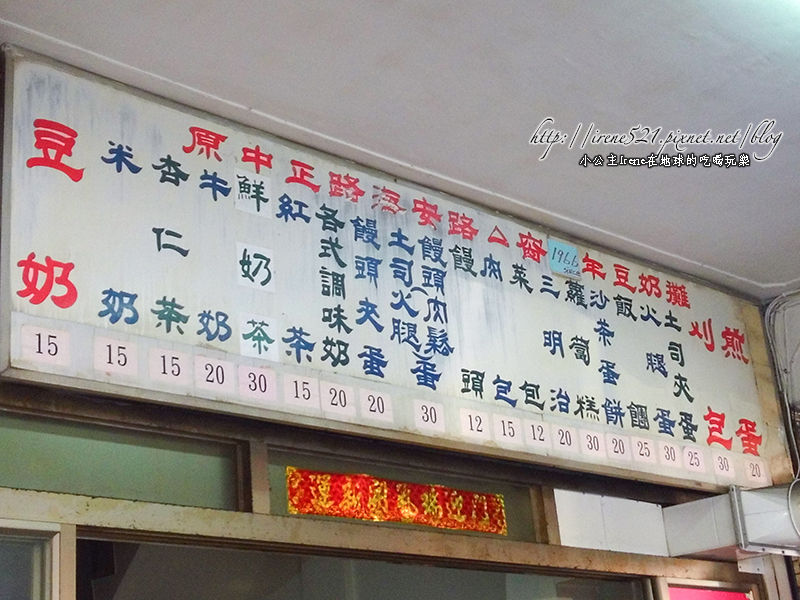 http://irene521.pixnet.net/blog
小公主Irene在地球的吃喝玩樂
原中正路海安路 窗1966年豆奶攤
豆奶 15
米奶 15
杏仁茶 15
牛奶 20
鮮奶茶 30
紅茶 15
各式調味奶 20
饅頭夾蛋 20
土司火腿
饅頭肉鬆(蛋 30
饅頭 12
肉包 15
菜包 12
三明治 20
蘿蔔糕 30
沙茶蛋餅 20
飯糰 25
火腿蛋 30
土司夾蛋 25
刈包 30
煎蛋 20